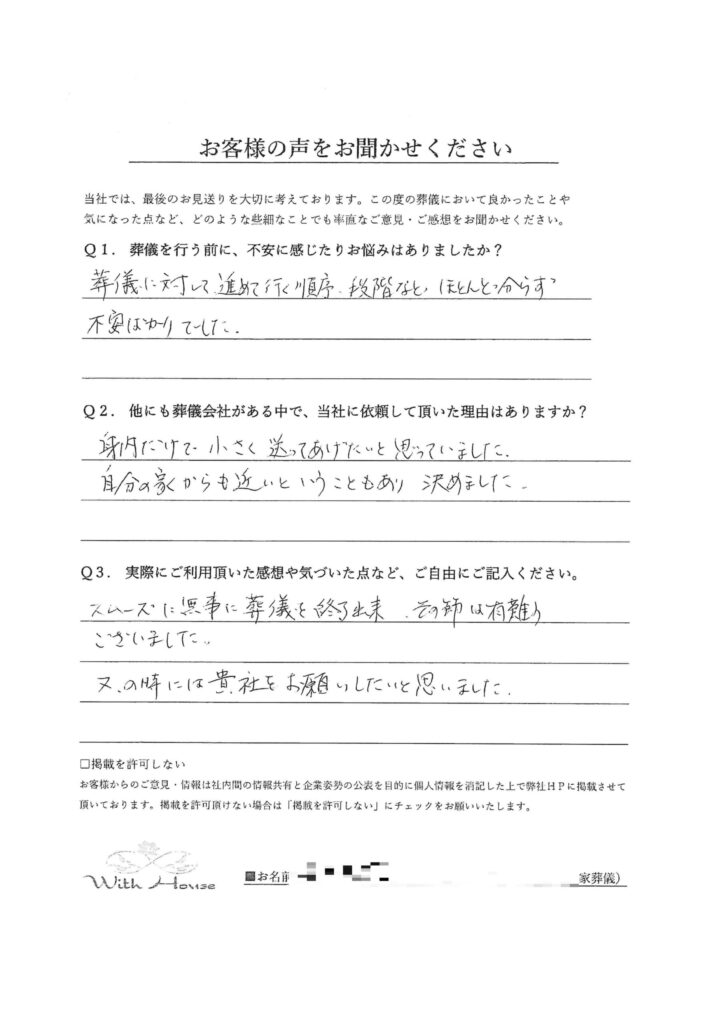 お客様の声をお聞かせください
当社では、最後のお見送りを大切に考えております。この度の葬儀において良かったことや
気になった点など、どのような些細なことでも率直なご意見・ご感想をお聞かせください。
Q1. 葬儀を行う前に、不安に感じたりお悩みはありましたか？
葬儀に対して進めて行く順序、段階など、ほとんど分らず
不安ばかりでした。
Q2. 他にも葬儀会社がある中で、当社に依頼して頂いた理由はありますか？
身内だけで小さく送ってあげたいと思っていました。
自分の家からも近いということもあり 決めました。
Q3. 実際にご利用頂いた感想や気づいた点など、ご自由にご記入ください。
スムーズに無事に葬儀を終了出来、その節は有難う
ございました。
又、の時には貴社をお願いしたいと思いました。
□掲載を許可しない
お客様からのご意見・情報は社内間の情報共有と企業姿勢の公表を目的に個人情報を消記した上で弊社HPに掲載させて
頂いております。掲載を許可頂けない場合は「掲載を許可しない」にチェックをお願いいたします。
With House
■お名前
家葬儀）